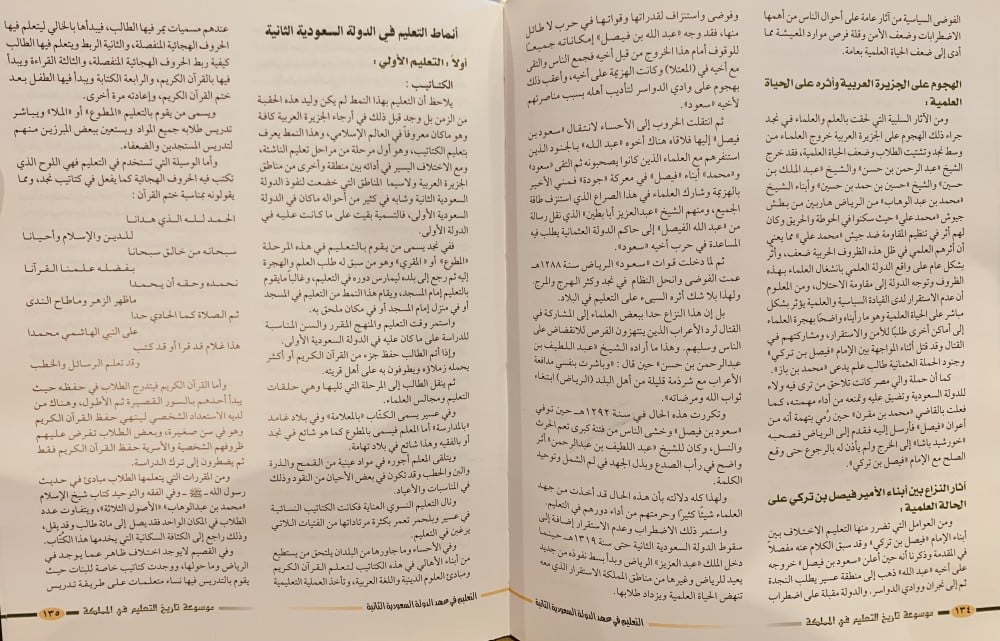 الفوضى السياسية من آثار عامة على أحوال الناس من أهمها
الاضطرابات وضعف الأمن وقلة فرص موارد المعيشة مما
أدى إلى ضعف الحياة العلمية بعامة.
الهجوم على الجزيرة العربية وأثره على الحياة
العلمية :
ومن الآثار السلبية التي لحقت بالعلم والعلماء في نجد
جراء ذلك الهجوم على الجزيرة العربية خروج العلماء من
وسط نجد وتشتيت الطلاب وضعف الحياة العلمية، فقد خرج
الشيخ «عبد الرحمن بن حسن» والشيخ «عبد الملك بن
حسين» والشيخ «حسين بن حمد بن حسين» وأبناء الشيخ
«محمد بن عبد الوهاب» من الرياض هاربين من بطش
جيوش «محمد علي» حيث سكنوا في الحوطة والحريق وكان
لهم أثر في تنظيم المقاومة ضد جيش «محمد علي» مما يعني
أن أثرهم العلمي في ظل هذه الظروف الحربية ضعف، وأثر
بشكل عام على واقع الدولة العلمي بانشغال العلماء بهذه
الظروف وتوجه الدولة إلى مقاومة الاحتلال، ومن المعلوم
أن عدم الاستقرار لدى القيادة السياسية والعلمية يؤثر بشكل
مباشر على الحياة العلمية وهو ما رأيناه واضحًا بهجرة العلماء
إلى أماكن أخرى طلبًا للأمن والاستقرار، ومشاركتهم في
القتال وقد قتل أثناء المواجهة بين الإمام «فيصل بن تركي»
وجنود الحملة العثمانية طالب علم يدعى «محمد بن باز».
كما أن حملة والي مصر كانت تلاحق من ترى فيه ولاء
للدولة السعودية وتضيق عليه وتمنعه من أداء مهمته، كما
فعلت بالقاضي «محمد بن مقرن» حين رُمي بتهمة أنه من
أعوان «فيصل» فأرسل إليه فقدم إلى الرياض فصحبه
«خورشيد باشا» إلى الخرج ولم يأذن له بالرجوع حتى وقع
الصلح مع الإمام «فيصل بن تركي».
آثار النزاع بين أبناء الأمير فيصل بن تركي على
الحالة العلمية :
ومن العوامل التي تضرر منها التعليم الاختلاف بين
أبناء الإمام «فيصل بن تركي» وقد سبق الكلام عنه مفصلاً
في المقدمة وذكرنا أنه حين أعلن «سعود بن فيصل» خروجه
على أخيه «عبد الله» ذهب إلى منطقة عسير يطلب النجدة
ثم إلى نجران ووادي الدواسر، والدولة مقبلة على اضطراب
١٣٤ موسوعة تاريخ التعليم في المملكة
وفوضى واستنزاف لقدراتها وقواتها في حرب لا طائل
منها، فقد وجه «عبد الله بن فيصل» إمكاناته جميعًا
للوقوف أمام هذا الخروج من قبل أخيه فجمع الناس والتقى
مع أخيه في (المعتلا) وكانت الهزيمة على أخيه، وأعقب ذلك
بهجوم على وادي الدواسر لتأديب أهله بسبب مناصرتهم
لأخيه «سعود».
ثم انتقلت الحروب إلى الأحساء لانتقال «سعود بن
فيصل» إليها فلاقاه هناك أخوه «عبد الله» بالجنود الذين
استنفرهم مع العلماء الذين كانوا يصحبونه ثم التقى «سعود»
و«محمد» أبناء «فيصل» في معركة «جودة» فمني الأخير
بالهزيمة وشارك العلماء في هذا الصراع الذي استنزف طاقة
الجميع، ومنهم الشيخ «عبدالعزيز أبا بطين» الذي نقل رسالة
من «عبد الله الفيصل» إلى حاكم الدولة العثمانية يطلب فيه
المساعدة في حرب أخيه «سعود».
ثم لما دخلت قوات «سعود» الرياض سنة ١٢٨٨هـ
عمت الفوضى وانحل النظام في نجد وكثر الهرج والمرج.
ولهذا بلا شك أثره السيء على التعليم في البلاد.
بل إن هذا النزاع حدا ببعض العلماء إلى المشاركة في
القتال لرد الأعراب الذين ينتهزون الفرص للانقضاض على
الناس وسلبهم. وهذا ما أراده الشيخ «عبد اللطيف بن
عبدالرحمن بن حسن» حين قال : «وباشرت بنفسي مدافعة
الأعراب مع شرذمة قليلة من أهل البلد (الرياض) ابتغاء
ثواب الله ومرضاته».
وتكررت هذه الحال في سنة ١٢٩٢هـ حين توفي
«سعود بن فيصل» وخشي الناس من فتنة كبرى تعم الحرث
والنسل، وكان للشيخ «عبد اللطيف بن عبدالرحمن» أثر
واضح في رأب الصدع وبذل الجهد في لم الشمل وتوحيد
الكلمة.
ولهذا كله دلالته بأن هذه الحال قد أخذت من جهد
العلماء شيئًا كثيرًا وحرمتهم من أداء دورهم في التعليم.
واستمر ذلك الاضطراب وعدم الاستقرار إضافة إلى
سقوط الدولة السعودية الثانية حتى سنة ١٣١٩هـ حينما
دخل الملك «عبد العزيز» الرياض وبدأ بسط نفوذه من جديد
يعيد للرياض وغيرها من مناطق المملكة الاستقرار الذي معه
تنهض الحياة العلمية ويزداد طلابها.
التعليم في عهد الدولة السعودية الثانية
أنماط التعليم في الدولة السعودية الثانية
أولاً : التعليم الأولي :
الكتاتيب :
يلاحظ أن التعليم بهذا النمط لم يكن وليد هذه الحقبة
من الزمن بل وجد قبل ذلك في أرجاء الجزيرة العربية كافة
وهو ماكان معروفاً في العالم الإسلامي، وهذا النمط يعرف
بتعليم الكتاتيب، وهو أول مرحلة من مراحل تعليم الناشئة،
ومع الاختلاف اليسير في أدائه بين منطقة وأخرى من مناطق
الجزيرة العربية ولاسيما المناطق التي خضعت لنفوذ الدولة
السعودية الثانية وشابه في كثير من أحواله ماكان في الدولة
السعودية الأولى، فالتسمية بقيت على ما كانت عليه في
الدولة الأولى.
ففي نجد يسمى من يقوم بالتعليم في هذه المرحلة
«المطوع» أو «المقرئ» وهو من سبق له طلب العلم والهجرة
إليه ثم رجع إلى بلده ليمارس دوره في التعليم، وغالباً مايقوم
بالتعليم إمام المسجد، ويقام هذا النمط من التعليم في المسجد
أو في منزل إمام المسجد أو في مكان ملحق به.
واستمر وقت التعليم والمنهج المقرر والسن المناسبة
للدراسة على ما كان عليه في الدولة السعودية الأولى.
وإذا أتم الطالب حفظ جزء من القرآن الكريم أو أكثر
يحمله زملاؤه ويطوفون به على أهل قريته.
ثم ينقل الطالب إلى المرحلة التي تليها وهي حلقات
التعليم ومجالس العلماء.
وفي عسير يسمى الكُتّاب «بالمعلامة» وفي بلاد غامد
«بالمدارسة» أما المعلم فيسمى بالمطوع كما هو شائع في نجد
أو بالفقيه وهذا شائع في بلاد تهامة.
ويتلقى المعلم أجوره في مواد عينية من القمح والذرة
والبن والحطب وقد تكون في بعض الأحيان من النقود وذلك
في المناسبات والأعياد.
ونال التعليم النسوي العناية فكانت الكتاتيب النسائية
في عسير وبلحمر تعمر بكثرة مرتاداتها من الفتيات اللاتي
يرغبن في التعليم.
وفي الأحساء وماجاورها من البلدان يلتحق من يستطيع
من أبناء الأهالي في هذه الكتاتيب لتعلم القرآن الكريم
ومبادئ العلوم الدينية واللغة العربية، وتأخذ العملية التعليمية
التعليم في عهد الدولة السعودية الثانية
عندهم مسميات يمر فيها الطالب، فيبدأها بالخالي ليتعلم فيها
الحروف الهجائية المنفصلة، والثانية الربط ويتعلم فيها الطالب
كيفية ربط الحروف الهجائية المنفصلة، والثالثة القراءة ويبدأ
فيها بالقرآن الكريم، والرابعة الكتابة ويبدأ فيها الطفل بعد
ختم القرآن الكريم، وإعادته مرة أخرى.
ويسمى من يقوم بالتعليم «المطوع» أو «الملا» ويباشر
تدريس طلابه جميع المواد ويستعين ببعض المبرزين منهم
لتدريس المستجدين والضعفاء.
وأما الوسيلة التي تستخدم في التعليم فهي اللوح الذي
تكتب فيه الحروف الهجائية كما يفعل في كتاتيب نجد، ومما
يقولونه بمناسبة ختم القرآن :
الحمد لله الذي هدانا
للدين والإسلام وأحيانا
سبحانه من خالق سبحانا
بفضله علمنا القرآنا
نحمده وحقه أن يحمدا
ماظهر الزهر وماطاح الندى
ثم الصلاة كما الحادي حدا
على النبي الهاشمي محمدا
هذا غلام قد قرا أو قد كتب
وقد تعلم الرسائل والخطب
وأما القرآن الكريم فيتدرج الطلاب في حفظه حيث
يبدأ أحدهم بالسور القصيرة ثم الأطول، وهناك من
لديه الاستعداد الشخصي لينهي حفظ القرآن الكريم
وهو في سن صغيرة، وبعض الطلاب تفرض عليهم
ظروفهم الشخصية والأسرية حفظ القرآن الكريم فقط
ثم يضطرون إلى ترك الدراسة.
ومن المقررات التي يتعلمها الطلاب مبادئ في حديث
رسول الله ـ ﷺ ـ وفي الفقه والتوحيد كتاب شيخ الإسلام
«محمد بن عبدالوهاب» «الأصول الثلاثة»، ويتفاوت عدد
الطلاب في المكان الواحد فقد يصل إلى مائة طالب وقد يقل،
وذلك راجع إلى الكثافة السكانية التي يخدمها هذا الكُتّاب.
وفي القصيم لايوجد اختلاف ظاهر عما يوجد في
الرياض وما حولها، ووجدت كتاتيب خاصة للبنات حيث
يقوم بالتدريس فيها نساء متعلمات على طريقة تدريس
موسوعة تاريخ التعليم في المملكة ١٣٥